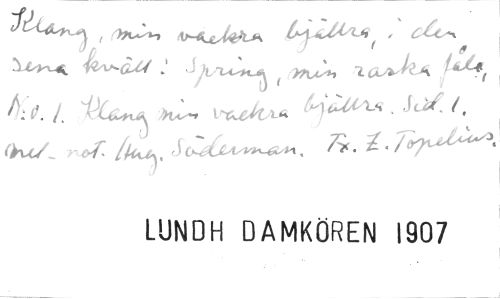 Klang, min vackra bjällra, i den
sena kväll! Spring, min raska fåle,
N:o. 1. Klang min vackra bjällra. Sid. 1.
mel. not. Aug. Söderman. Tx. Z. Topelius.
LUNDH DAMKÖREN 1907